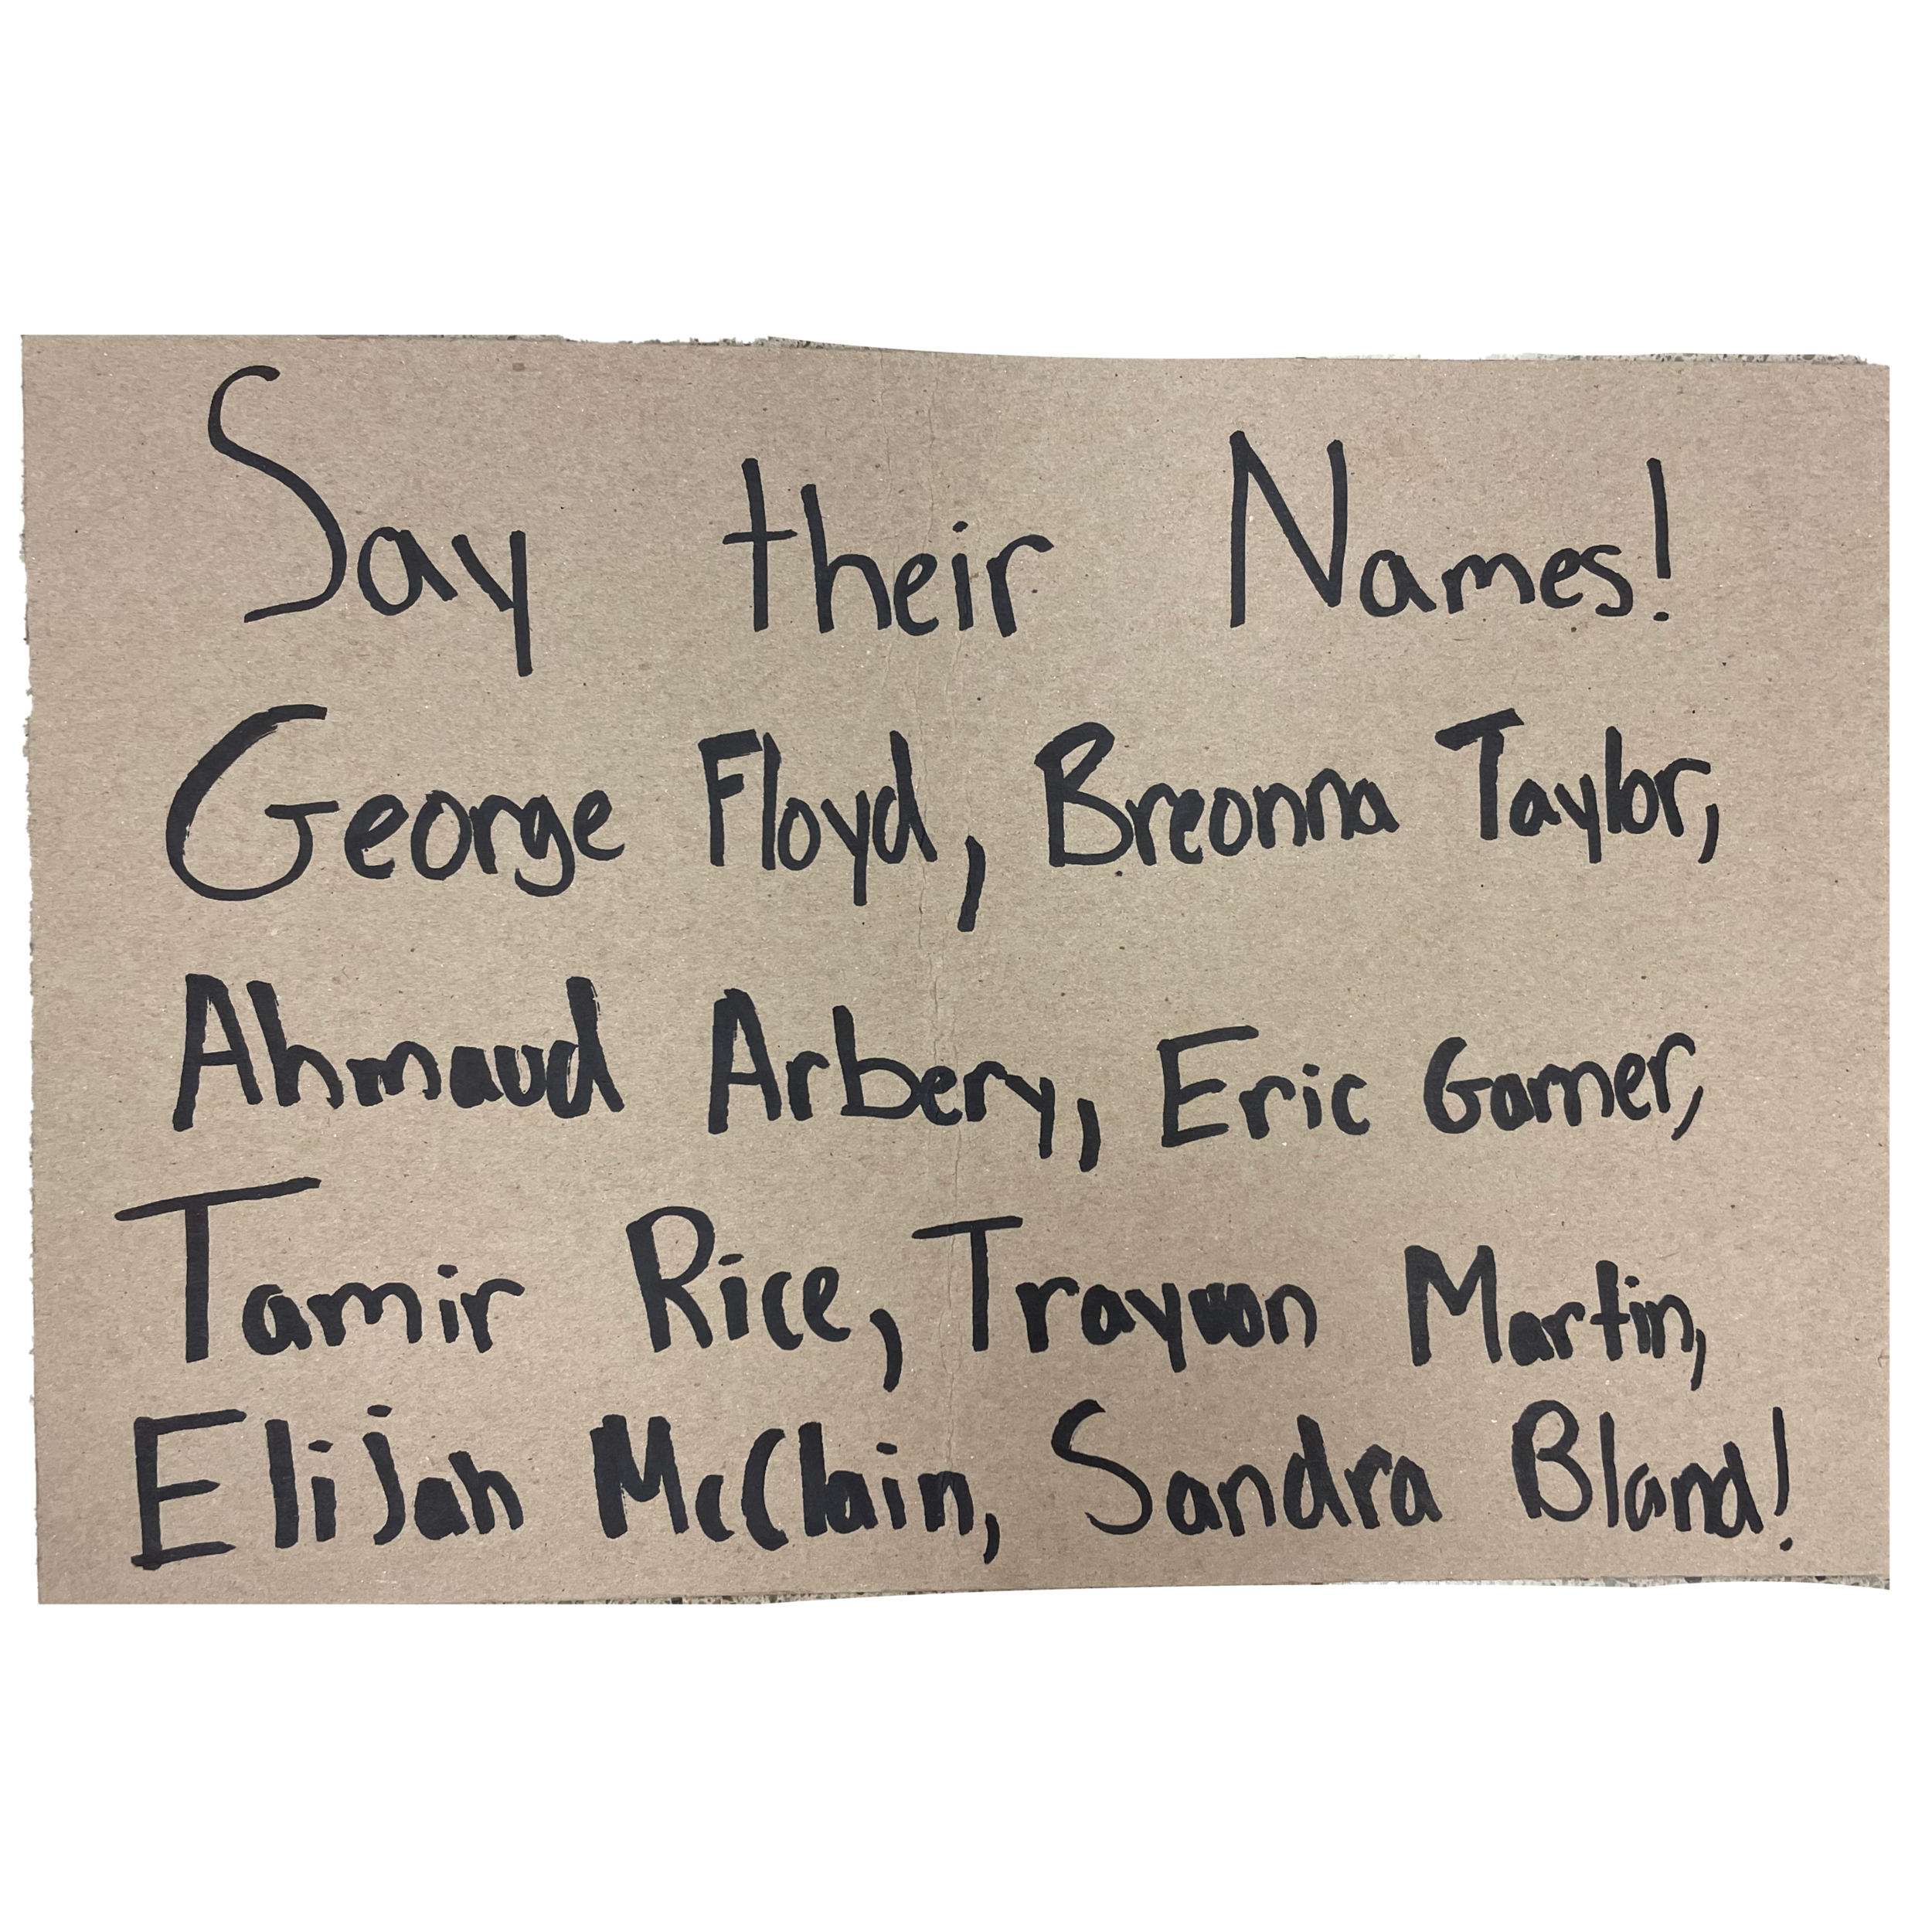 Say their Names!
George Floyd, Breonna Taylor,
Ahmaud Arbery, Eric Garner,
Tamir Rice, Trayvon Martin,
Elijah McClain, Sandra Bland!